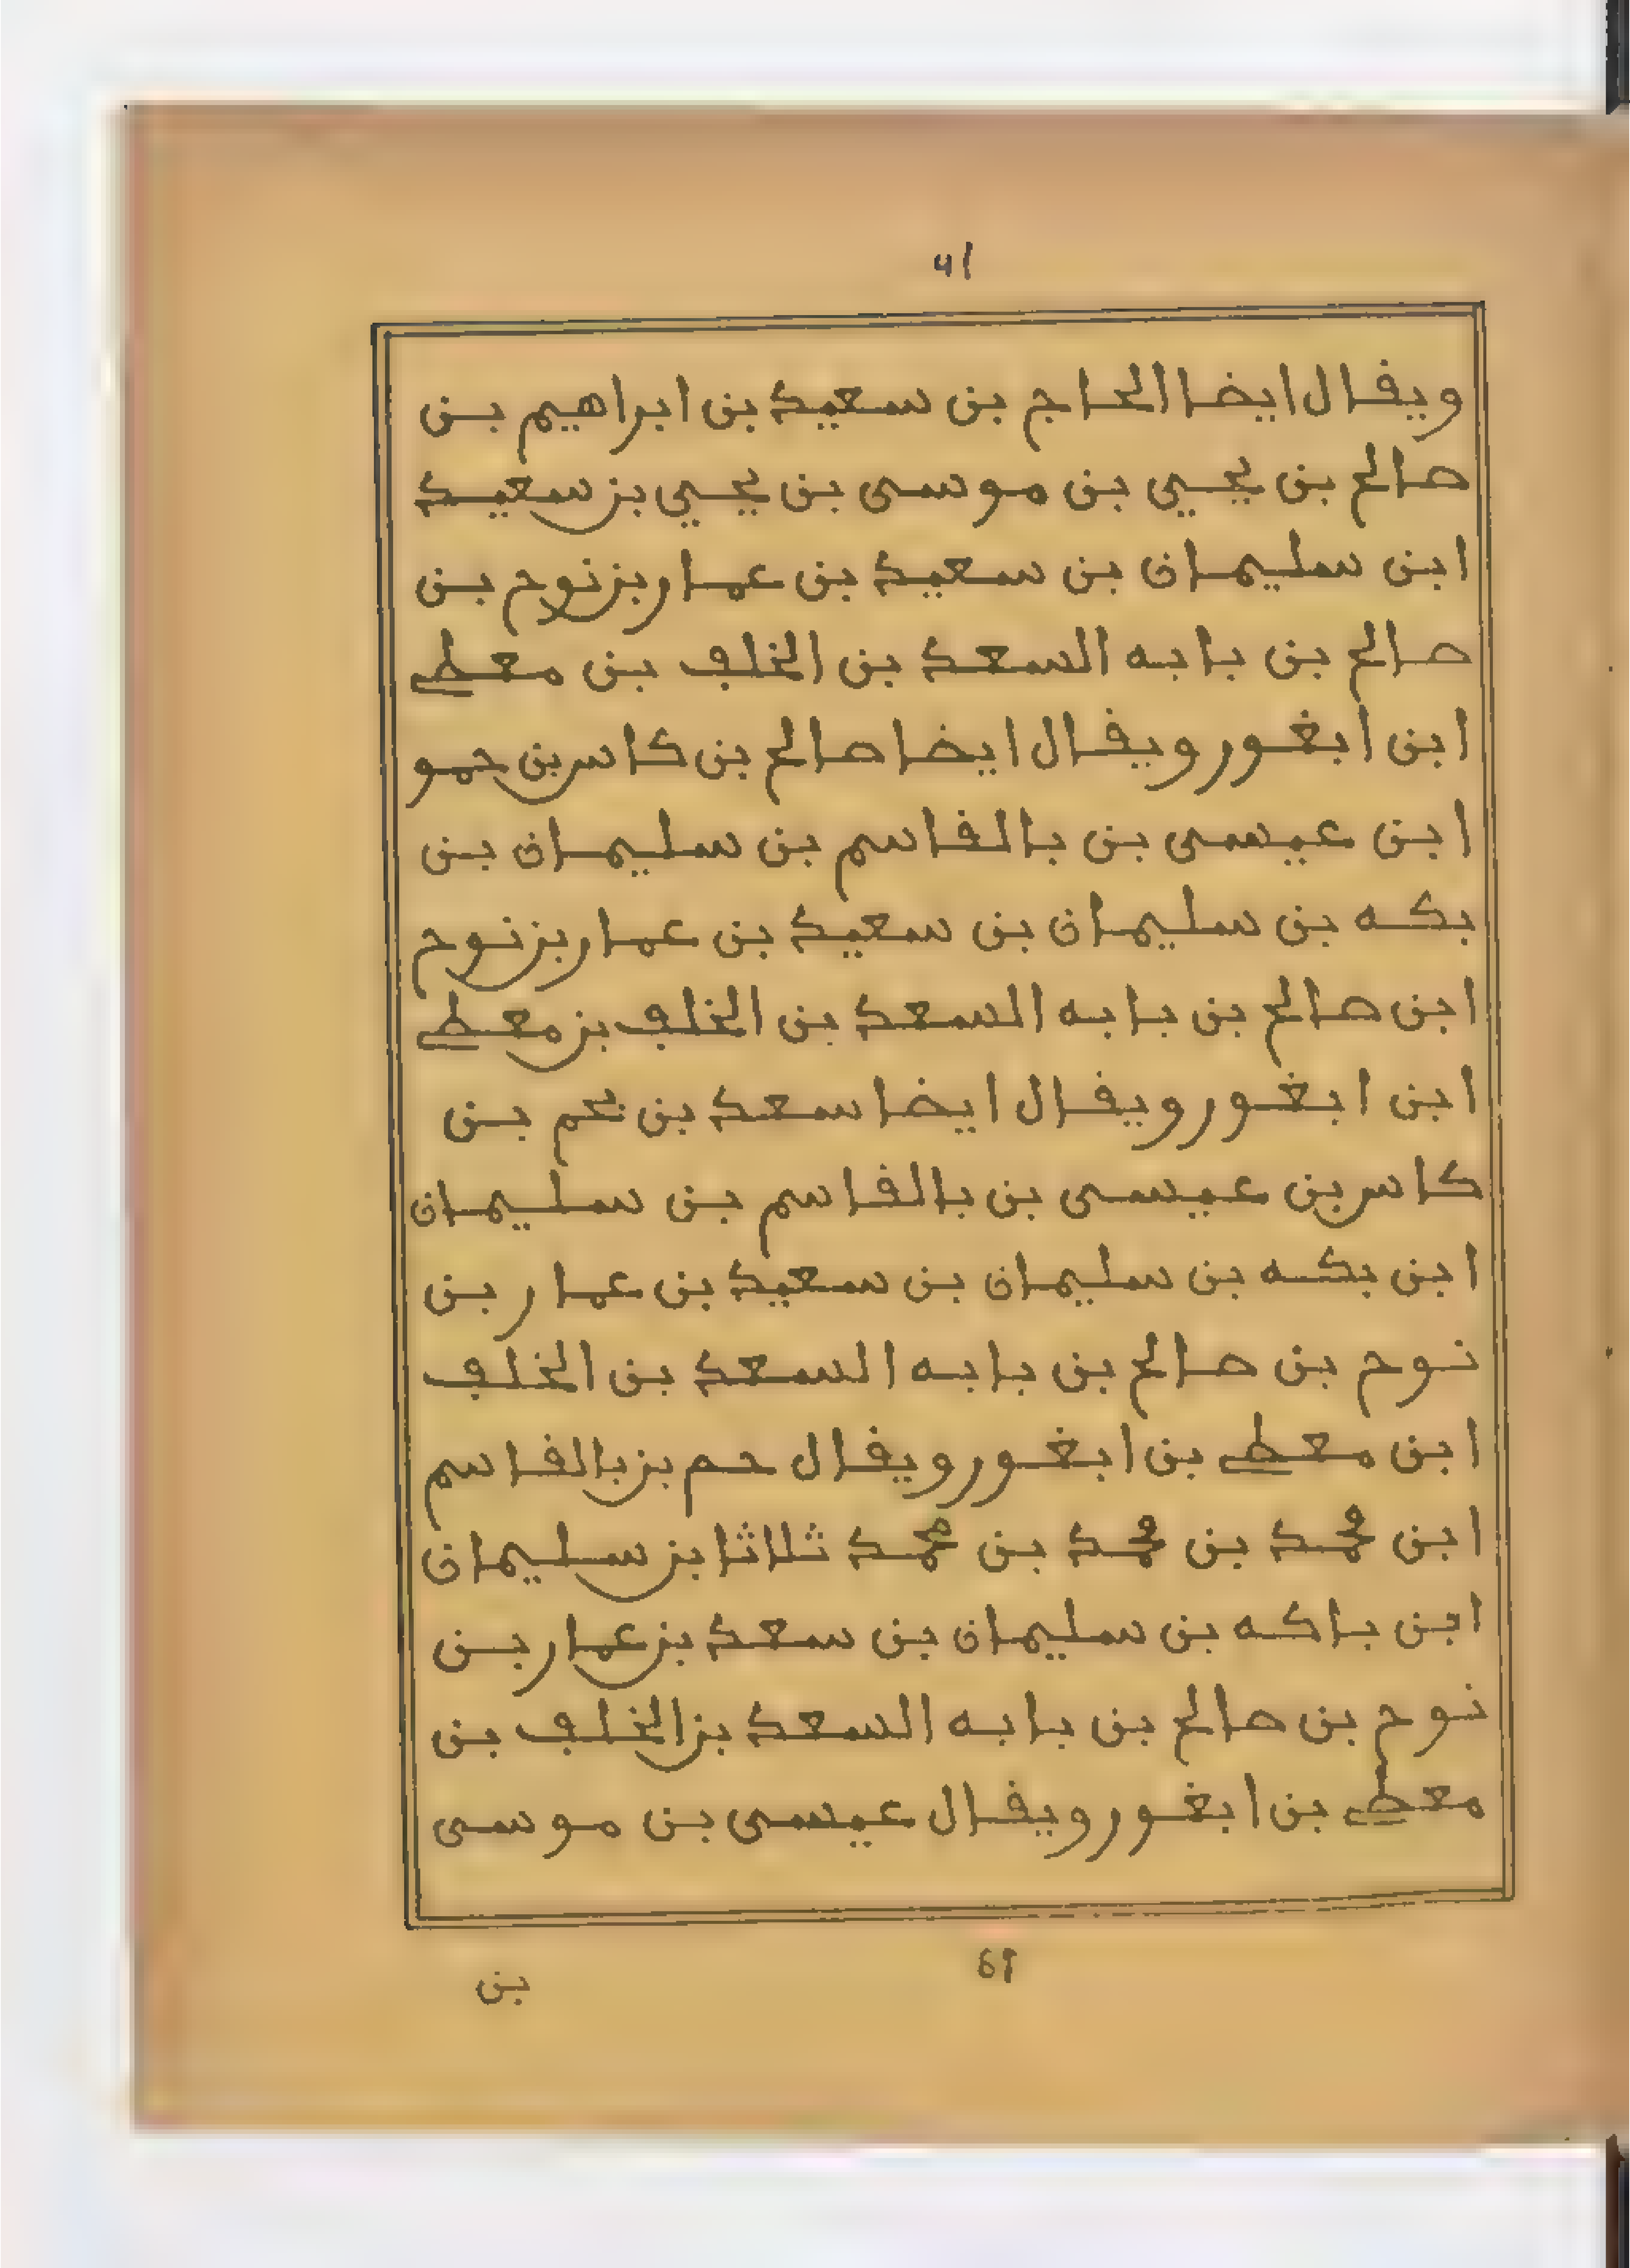 41
ويقال ايضا الحاج بن سعيد بن ابراهيم بن
صالح بن يحيي بن موسى بن يحيي بن سعيد
ابن سليمان بن سعيد بن عمار بن نوح بن
صالح بن بابه السعد بن الخلف بن معطي
ابن ابغور ويقال ايضا صالح بن كاسي بن حمو
ابن عيسى بن بالقاسم بن سليمان بن
بكه بن سليمان بن سعيد بن عمار بن نوح
ابن صالح بن بابه السعد بن الخلف بن معطي
ابن ابغور ويقال ايضا سعد بن يحم بن
كاسي بن عيسى بن بالقاسم بن سليمان
ابن بكه بن سليمان بن سعيد بن عمار بن
نوح بن صالح بن بابه السعد بن الخلف
ابن معطي بن ابغور ويقال حم بن بالقاسم
ابن محمد بن محمد بن محمد ثلاثا بن سليمان
ابن باكه بن سليمان بن سعد بن عمار بن
نوح بن صالح بن بابه السعد بن الخلف بن
معطي بن ابغور ويقال عيسى بن موسى
61
بن